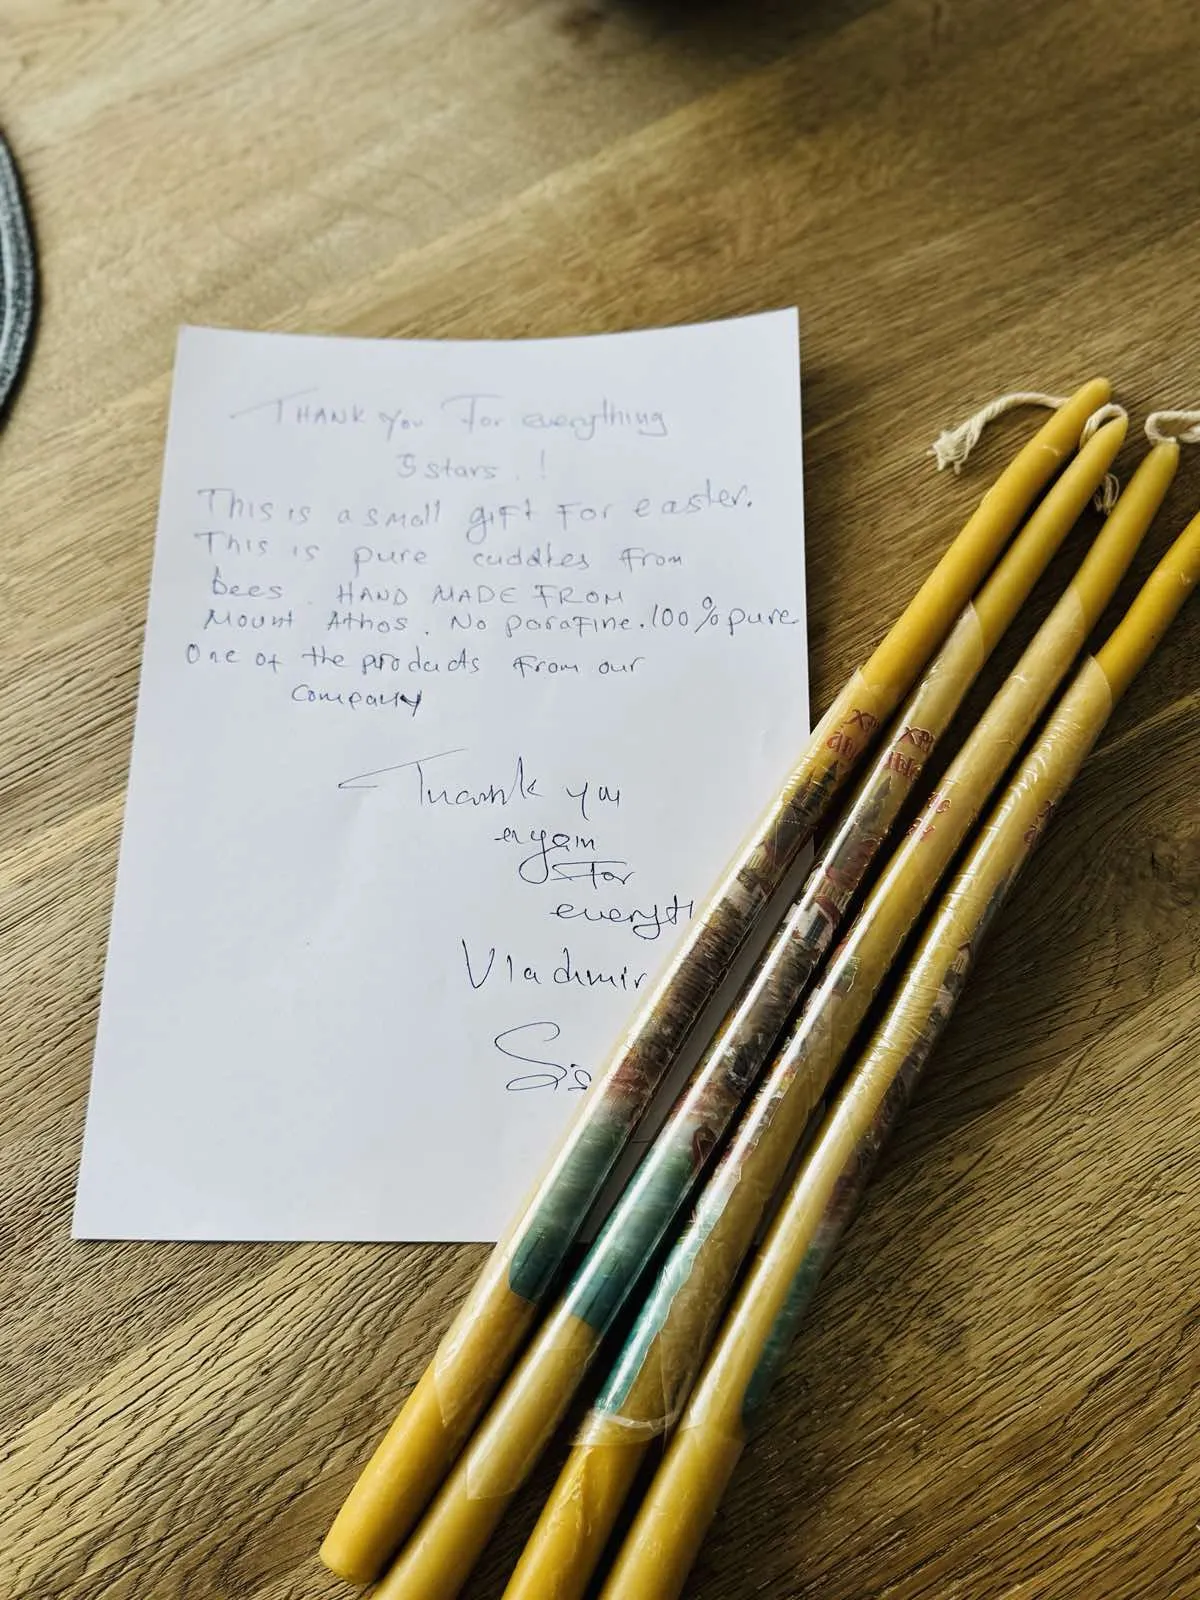 THANK You For everything
5 stars . !
This is a small gift For easter.
This is pure cuddles From
bees . HAND MADE FROM
Mount Athos . No parafine . 100% pure
One of the products From our
company
Thank you
For
Vladimir